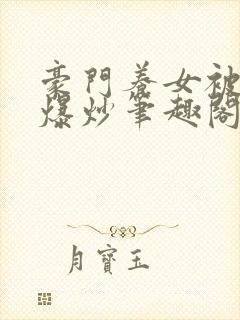 豪門養女被
爆炒筆趣閣
月寶玉